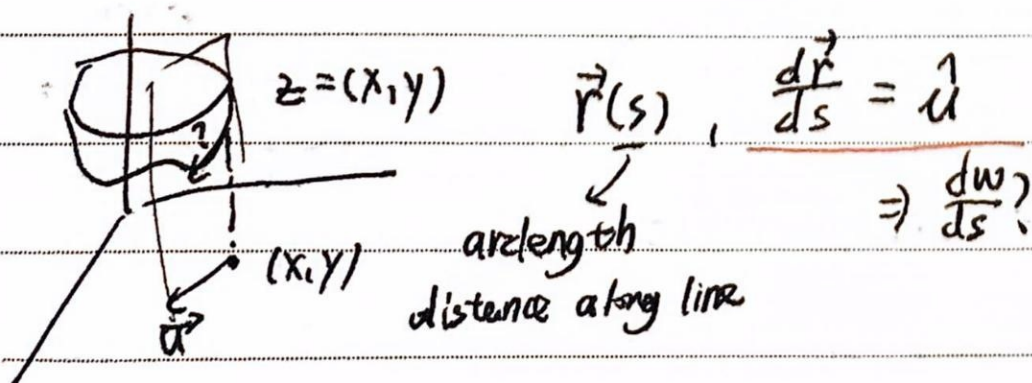 z = (x, y)
r⃗(s), dr⃗/ds = û
⇒ dw/ds?
arclength
distance along line
(x, y)
u⃗